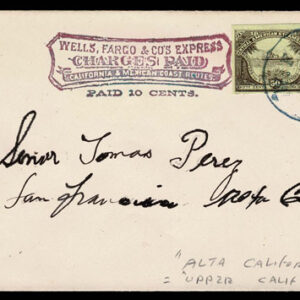 WELLS, FARGO & CO'S EXPRESS
CHARGES PAID
CALIFORNIA & MEXICAN COAST ROUTES.
PAID 10 CENTS.
Señor Tomas Perez
San Francisco
"ALTA CALIFOR
= "UPPER CALIF